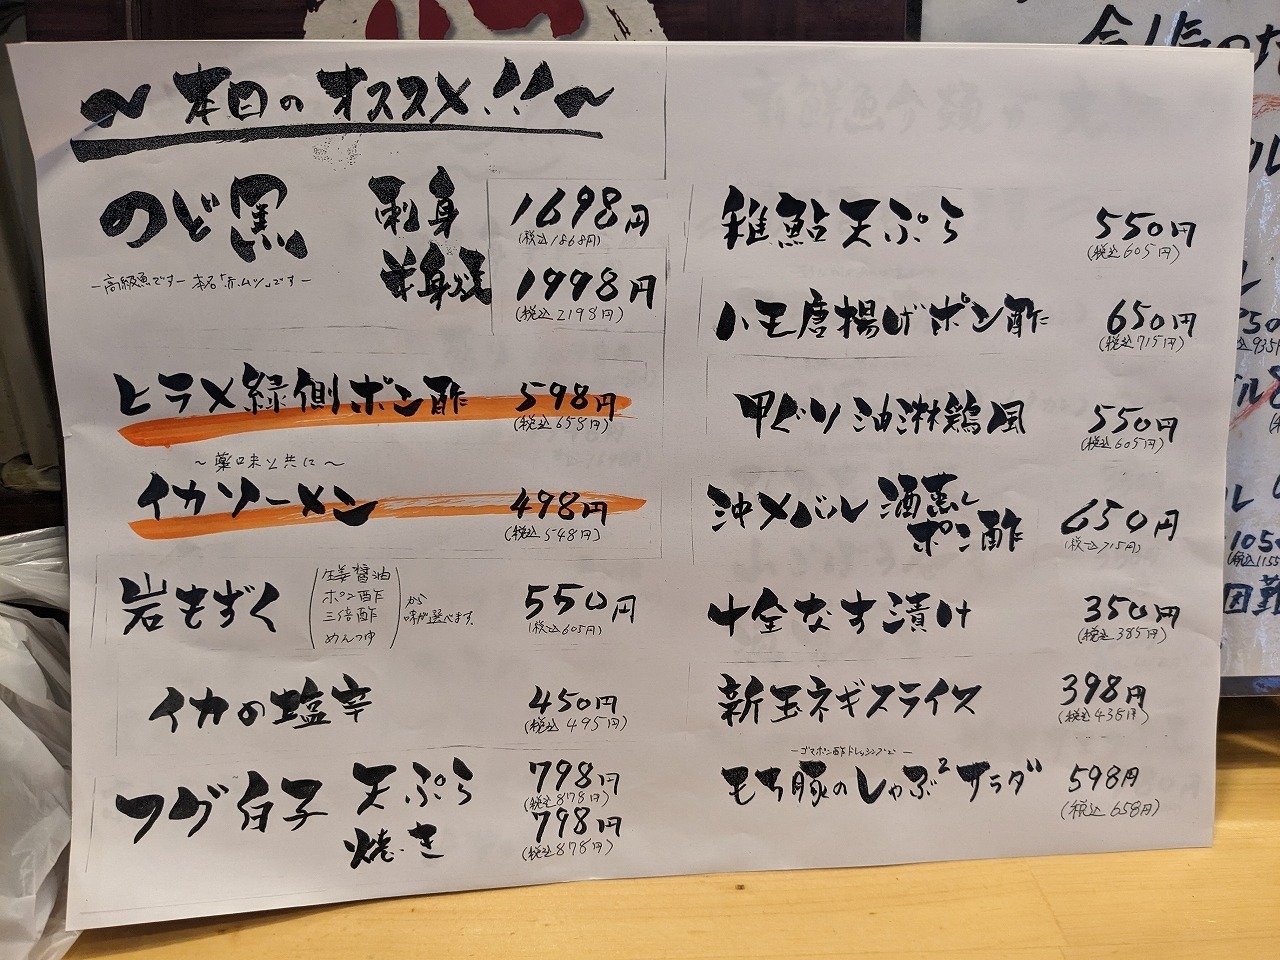 〜本日のオススメ!!〜
のど黒 刺身 1698円
(税込1868円)
半身焼 1998円
(税込2198円)
ー高級魚ですー本名「赤ムツ」ですー
ヒラメ縁側ポン酢 598円
(税込658円)
〜薬味と共に〜
イカソーメン 498円
(税込548円)
岩もずく
生姜醤油
ポン酢
三倍酢
めんつゆ
から
味が選べます。
550円
(税込605円)
イカの塩辛 450円
(税込495円)
フグ白子 天ぷら 798円
(税込878円)
焼き 798円
(税込878円)
稚鮎天ぷら 550円
(税込605円)
ハモ唐揚げポン酢 650円
(税込715円)
甲ぐり油淋鶏風 550円
(税込605円)
沖メバル酒蒸し
ポン酢
650円
(税込715円)
十全なす漬け 350円
(税込385円)
新玉ネギスライス 398円
(税込438円)
ーゴマポン酢ドレッシングでー
もち豚のしゃぶ²サラダ 598円
(税込658円)